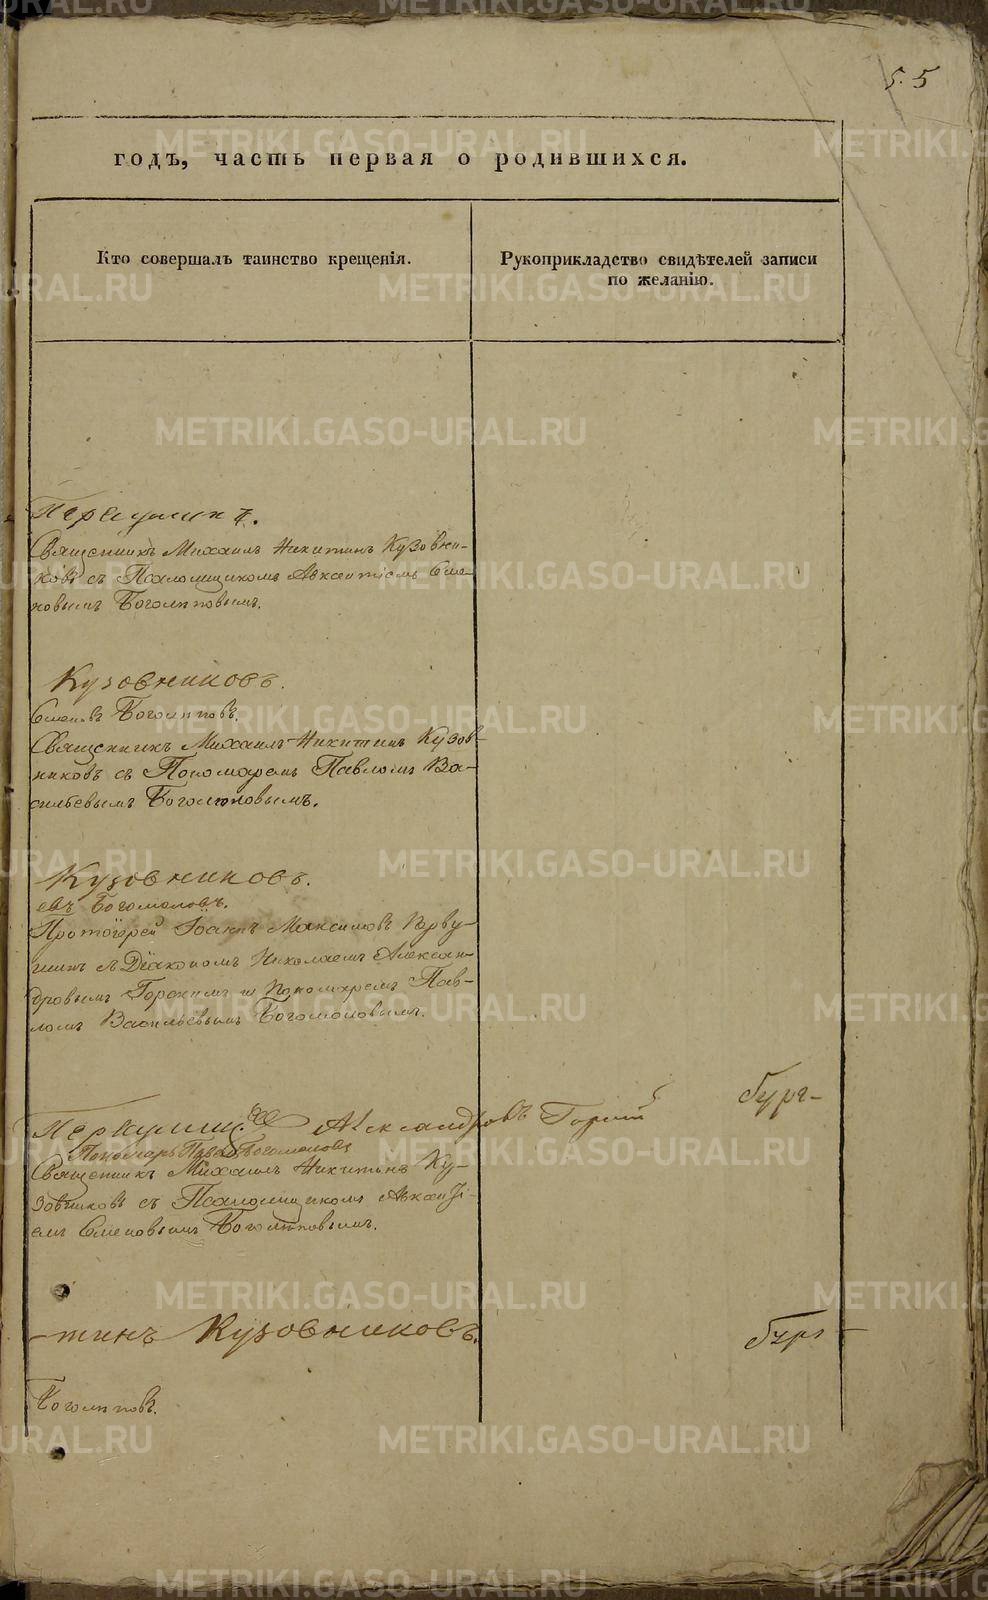 5.5
годъ, часть первая о родившихся.
Кто совершалъ таинство крещенія.
Рукоприкладство свидѣтелей записи
по желанію.
Священникъ Михаилъ Никитинъ Кузовни-
ковъ съ Псаломщикомъ Авксентіемъ Семе-
новымъ Боголѣповымъ.
Кузовниковъ.
Семеновъ Боголѣповъ.
Священникъ Михаилъ Никитинъ Кузов-
никовъ съ Пономаремъ Павломъ Ва-
сильевымъ Богомоловымъ.
Кузовниковъ.
евъ Богомоловъ.
Протоіерей Іоаннъ Максимовъ
съ Діакономъ Николаемъ Алексан-
дровымъ и Пономаремъ Пав-
ломъ Васильевымъ Богомоловымъ.
Александровъ
Пономарь Павелъ Богомоловъ
Священникъ Михаилъ Никитинъ Ку-
зовниковъ съ Псаломщикомъ Авксенті-
емъ Семеновымъ Боголѣповымъ.
-тинъ Кузовниковъ.
Боголѣповъ.
METRIKI.GASO-URAL.RU